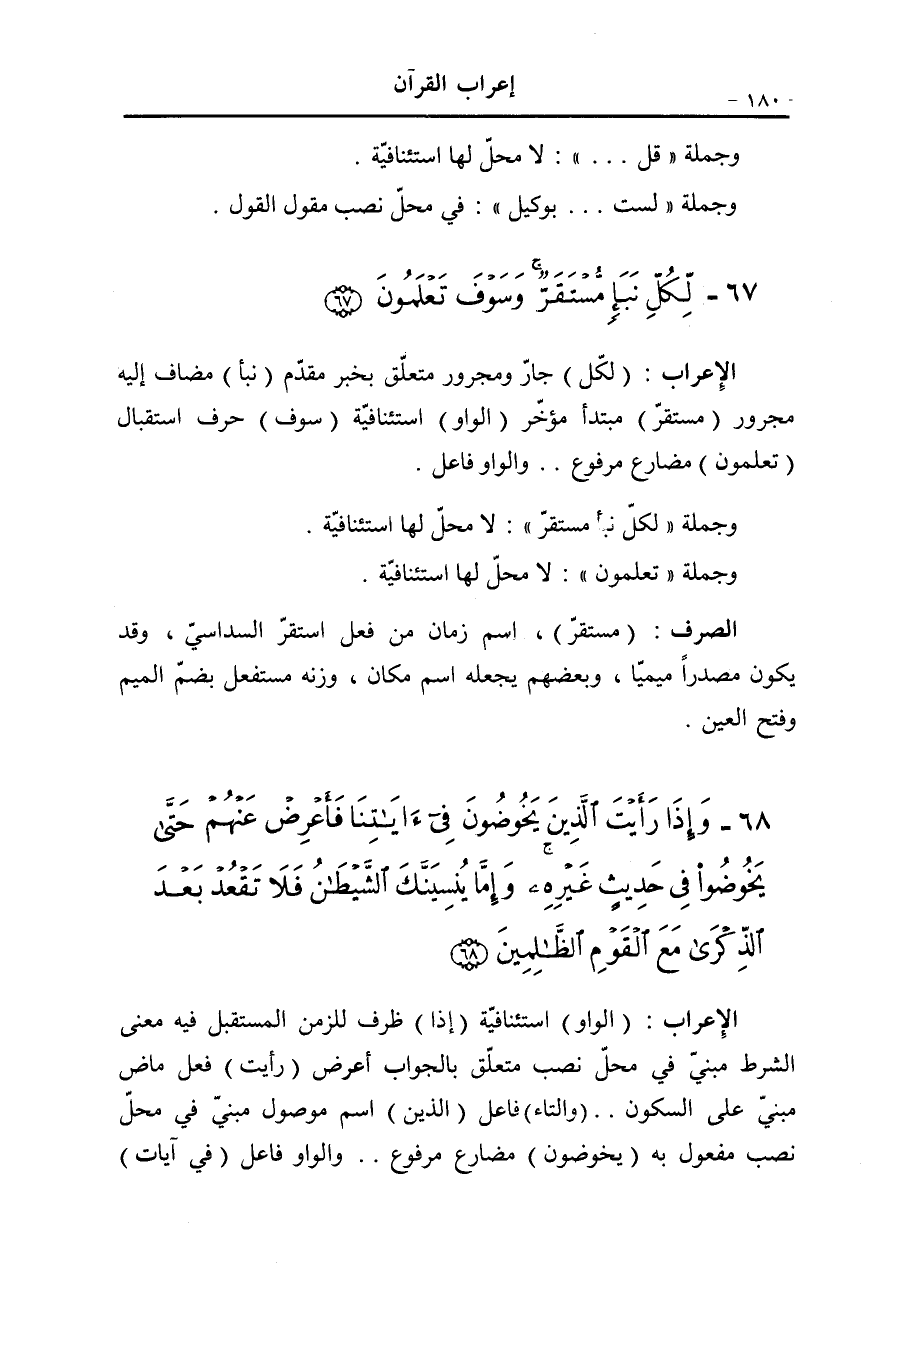 إعراب القرآن
- ١٨٠ -
وجملة « قل . . . » : لا محلّ لها استئنافيّة .
وجملة « لست . . . بوكيل » : في محلّ نصب مقول القول .
٦٧ - لِّكُلِّ نَبَإٍ مُّسْتَقَرٌّ ۚ وَسَوْفَ تَعْلَمُونَ ﴿٦٧﴾
الإعراب : ( لكّل ) جارّ ومجرور متعلّق بخبر مقدّم ( نبأ ) مضاف إليه
مجرور ( مستقرّ ) مبتدأ مؤخّر ( الواو ) استئنافيّة ( سوف ) حرف استقبال
( تعلمون ) مضارع مرفوع . . والواو فاعل .
وجملة « لكلّ نبأ مستقرّ » : لا محلّ لها استئنافيّة .
وجملة « تعلمون » : لا محلّ لها استئنافيّة .
الصرف : ( مستقرّ ) ، اسم زمان من فعل استقرّ السداسيّ ، وقد
يكون مصدراً ميميّا ، وبعضهم يجعله اسم مكان ، وزنه مستفعل بضمّ الميم
وفتح العين .
٦٨ - وَإِذَا رَأَيْتَ ٱلَّذِينَ يَخُوضُونَ فِىٓ ءَايَـٰتِنَا فَأَعْرِضْ عَنْهُمْ حَتَّىٰ
يَخُوضُوا۟ فِى حَدِيثٍ غَيْرِهِۦ ۚ وَإِمَّا يُنسِيَنَّكَ ٱلشَّيْطَـٰنُ فَلَا تَقْعُدْ بَعْدَ
ٱلذِّكْرَىٰ مَعَ ٱلْقَوْمِ ٱلظَّـٰلِمِينَ ﴿٦٨﴾
الإعراب : ( الواو ) استئنافيّة ( إذا ) ظرف للزمن المستقبل فيه معنى
الشرط مبنيّ في محلّ نصب متعلّق بالجواب أعرض ( رأيت ) فعل ماض
مبنيّ على السكون . . (والتاء) فاعل ( الذين ) اسم موصول مبنيّ في محلّ
نصب مفعول به ( يخوضون ) مضارع مرفوع . . والواو فاعل ( في آيات )